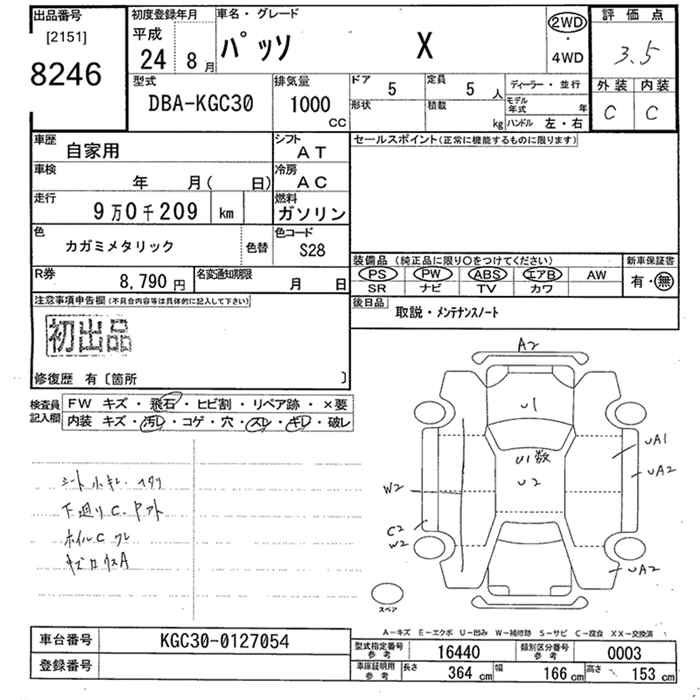 出品番号 初度登録年月 車名・グレード 評価点
[2151] 平成 2WD
8246 24 8月 パッソ X ・ 3.5
4WD
型式 排気量 ドア 5 定員 5人 ディーラー・並行 外装 内装
DBA-KGC30 1000 cc 形状 積載 kg モデル年式 年 C C
ハンドル 左・右
車歴 自家用 シフト AT セールスポイント(正常に機能するものに限ります)
車検 年 月( 日) 冷房 AC
走行 9万0千209 km 燃料 ガソリン
色 カガミメタリック 色替 色コード S28
装備品 (純正品に限り○をつけてください) 新車保証書
R券 8,790円 名変通知期限 月 日 PS PW ABS エアB AW 有・無
SR ナビ TV カワ
注意事項申告欄(不具合内容等は具体的に記入して下さい) 後日品 取説・メンテナンスノート
初出品
修復歴 有〔箇所 〕
検査員記入欄 FW キズ・飛石・ヒビ割・リペア跡・×要
内装 キズ・汚レ・コゲ・穴・スレ・キレ・破レ
A2
U1
UA1
U1数
U2
UA2
W2
シート小キレ
下廻りC
C2
W2
ホイルC
UA2
スペア
A-キズ E-エクボ U-凹み W-補修跡 S-サビ C-腐食 XX-交換済
車台番号 KGC30-0127054
型式指定番号 参考 16440 類別区分番号 参考 0003
登録番号
車庫証明用 参考 長さ 364 cm 幅 166 cm 高さ 153 cm